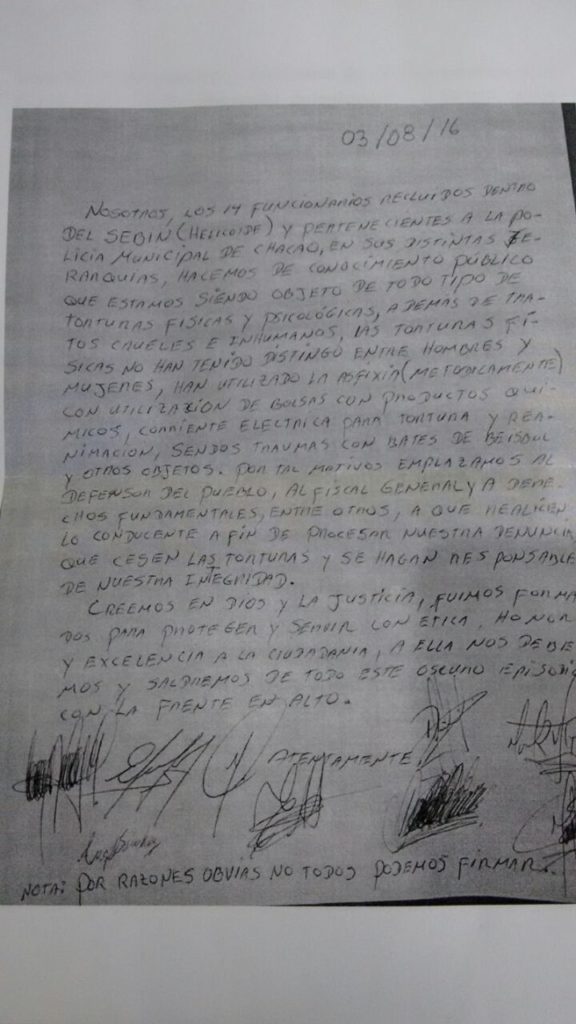 03/08/16
NOSOTROS, LOS 14 FUNCIONARIOS RECLUIDOS DENTRO
DEL SEBIN (HELICOIDE) Y PERTENECIENTES A LA PO-
LICIA MUNICIPAL DE CHACAO, EN SUS DISTINTAS JE-
RARQUIAS, HACEMOS DE CONOCIMIENTO PÚBLICO
QUE ESTAMOS SIENDO OBJETO DE TODO TIPO DE
TORTURAS FISICAS Y PSICOLÓGICAS, ADEMÁS DE TRA-
TOS CRUELES E INHUMANOS, LAS TORTURAS FÍ-
SICAS NO HAN TENIDO DISTINGO ENTRE HOMBRES Y
MUJERES, HAN UTILIZADO LA ASFIXIA (METODICAMENTE)
CON UTILIZACIÓN DE BOLSAS CON PRODUCTOS QUÍ-
MICOS, CORRIENTE ELECTRICA PARA TORTURA Y REA-
NIMACION, SENDOS TRAUMAS CON BATES DE BEISBOL
Y OTROS OBJETOS. POR TAL MOTIVOS EMPLAZAMOS AL
DEFENSOR DEL PUEBLO, AL FISCAL GENERAL Y A DERE-
CHOS FUNDAMENTALES, ENTRE OTROS, A QUE REALICEN
LO CONDUCENTE A FIN DE PROCESAR NUESTRA DENUNCIA
QUE CESEN LAS TORTURAS Y SE HAGAN RESPONSABLE
DE NUESTRA INTEGRIDAD.
CREEMOS EN DIOS Y LA JUSTICIA, FUIMOS FORMA
DOS PARA PROTEGER Y SERVIR CON ETICA, HONOR
Y EXCELENCIA A LA CIUDADANIA, A ELLA NOS DEBE
MOS Y SALDREMOS DE TODO ESTE OSCURO EPISODIO
CON LA FRENTE EN ALTO.
ATENTAMENTE
NOTA: POR RAZONES OBVIAS NO TODOS PODEMOS FIRMAR.